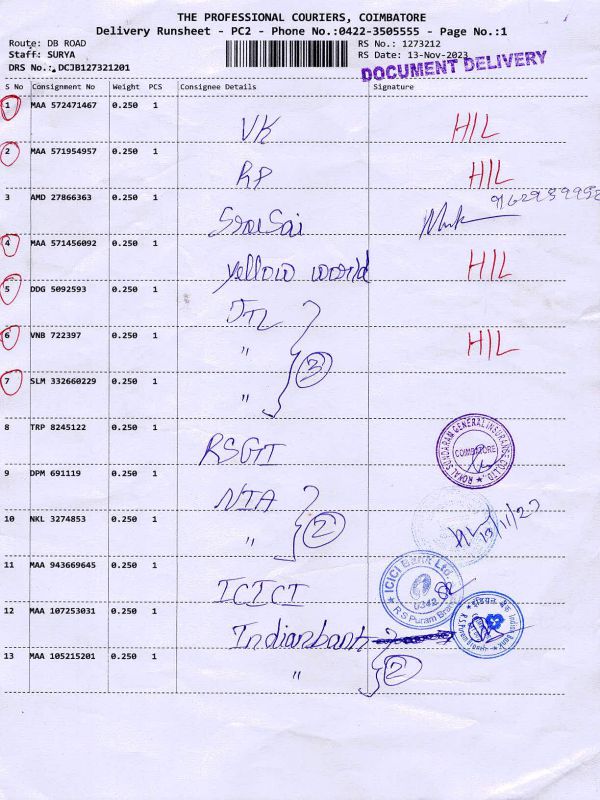 THE PROFESSIONAL COURIERS, COIMBATORE
Delivery Runsheet - PC2 - Phone No.:0422-3505555 - Page No.:1
Route: DB ROAD RS No.: 1273212
Staff: SURYA RS Date: 13-Nov-2023
DRS No.:.DCJB127321201 DOCUMENT DELIVERY
S No Consignment No Weight PCS Consignee Details Signature
1 MAA 572471467 0.250 1 VK H/L
2 MAA 571954957 0.250 1 RP H/L
3 AMD 27866363 0.250 1 Sroe Sai
4 MAA 571456092 0.250 1 yellow world H/L
5 DDG 5092593 0.250 1 JTL
6 VNB 722397 0.250 1 " 3 H/L
7 SLM 332660229 0.250 1 "
8 TRP 8245122 0.250 1 RSGI ROYAL SUNDARAM GENERAL INSURANCE CO. LTD. COIMBATORE
9 DPM 691119 0.250 1 NIA
10 NKL 3274853 0.250 1 " 2 13/11/23
11 MAA 943669645 0.250 1 ICICI ICICI Bank Ltd R S Puram Branch
12 MAA 107253031 0.250 1 Indianbank इंडियन बैंक Indian Bank
13 MAA 105215201 0.250 1 " 2